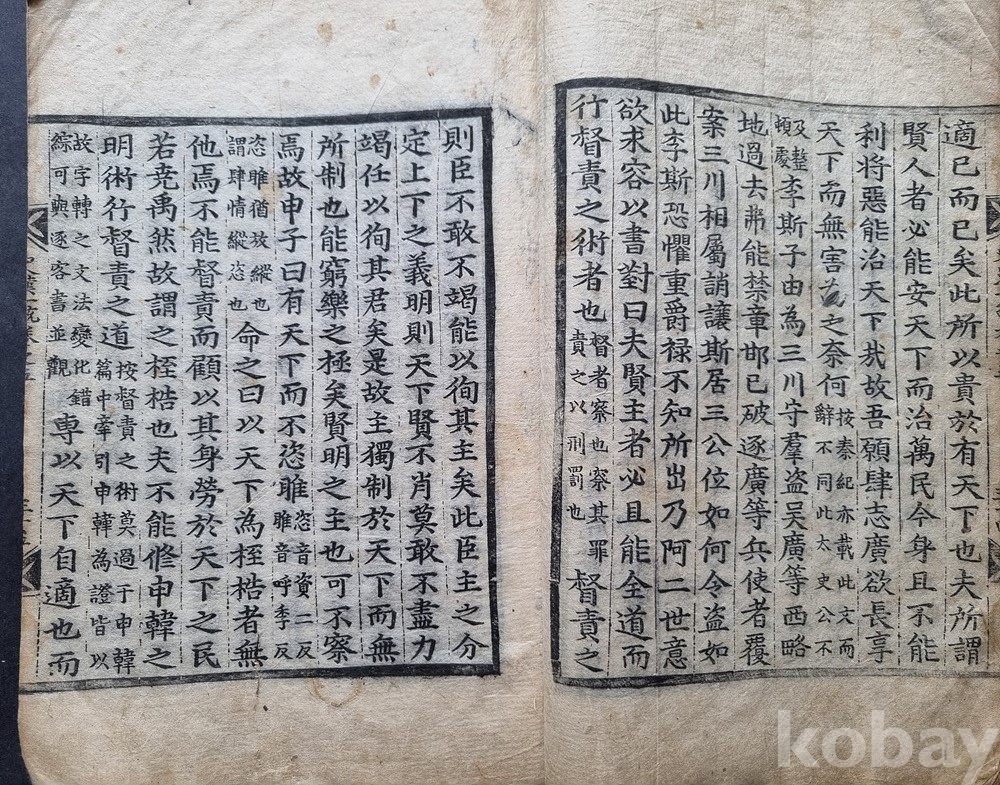 適己而已矣此所以貴於有天下也夫所謂
賢人者必能安天下而治萬民今身且不能
利將惡能治天下㢤故吾願肆志廣欲長享
天下而無害爲之奈何按秦紀亦載此文而辭不同此太史公不
及整頓處李斯子由為三川守羣盗吳廣等西略
地過去弗能禁章邯已破逐廣等兵使者覆
案三川相屬誚讓斯居三公位如何令盗如
此李斯恐懼重爵禄不知所出乃阿二世意
欲求容以書對曰夫賢主者必且能全道而
行督責之術者也督者察也察其罪責之以刑罰也督責之
則臣不敢不竭能以徇其主矣此臣主之分
定上下之義明則天下賢不肖莫敢不盡力
竭任以徇其君矣是故主獨制於天下而無
所制也能窮樂之極矣賢明之主也可不察
焉故申子曰有天下而不恣睢恣音資二反睢音呼季反
恣睢猶放縱也謂肆情縱恣也命之曰以天下為桎梏者無
他焉不能督責而顧以其身勞於天下之民
若尭禹然故謂之桎梏也夫不能修申韓之
明術行督責之道按督責之術莫過于申韓篇中牽引申韓為證皆以
故字轉之文法變化錯綜可與逐客書並觀專以天下自適也而
kobay